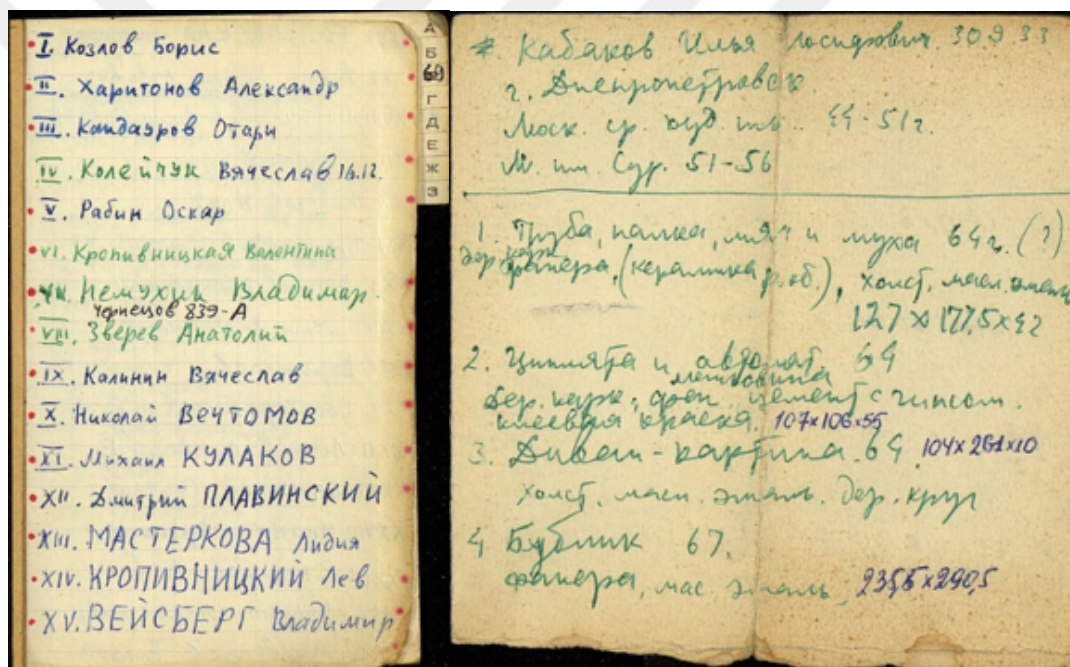 I. Козлов Борис
II. Харитонов Александр
III. Кандауров Отари
IV. Колейчук Вячеслав 16.12.
V. Рабин Оскар
VI. Кропивницкая Валентина
VII. Немухин Владимир.
Чернецов 839-А
VIII. Зверев Анатолий
IX. Калинин Вячеслав
X. Николай ВЕЧТОМОВ
XI. Михаил КУЛАКОВ
XII. Дмитрий ПЛАВИНСКИЙ
XIII. МАСТЕРКОВА Лидия
XIV. КРОПИВНИЦКИЙ Лев
XV. ВЕЙСБЕРГ Владимир
А
Б
69
Г
Д
Е
Ж
З
Кабаков Илья Иосифович. 30.9.33
г. Днепропетровск.
Моск. ср. худ. шк.
М. им. Сур. 51-56
1. Труба, палка, мяч и муха 64г. (?)
дер. карк.
фанера, (керамика р. об.), холст. масл. эмаль
127 x 177,5 x 42
2. Цыплята и автомат 64
мешковина
дер. карк; цемент с гипсом.
клеевая краска. 107x106x55
3. Диван-картина. 64. 104x261x10
холст. масл. эмаль. дер. круг
4 Бублик 67.
фанера, мас. эмаль, 235,5x290,5